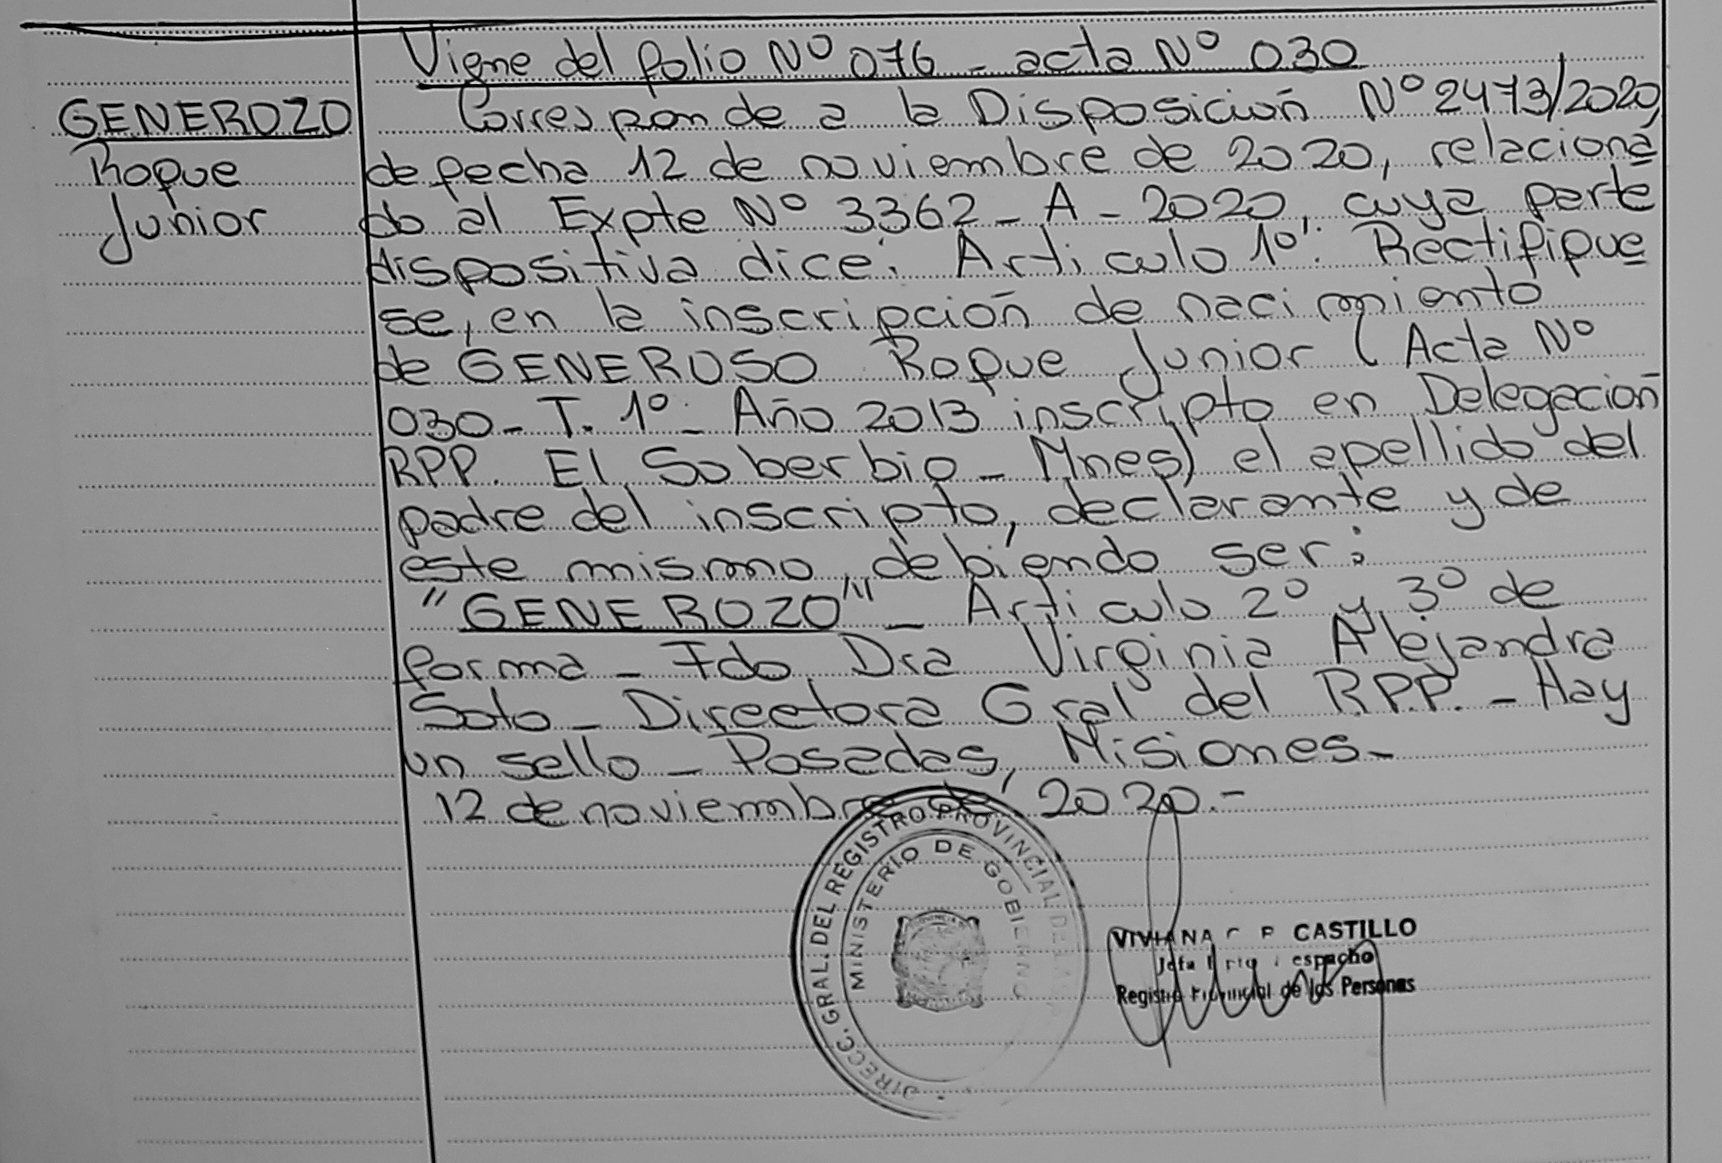 Viene del folio Nº 076 - acta Nº 030
GENEROZO
Roque
Junior
Corresponde a la Disposición Nº 2473/2020,
de fecha 12 de noviembre de 2020, relaciona
do al Expte Nº 3362 - A - 2020, cuya parte
dispositiva dice: Articulo 1º: Rectifique
se, en la inscripción de nacimiento
de GENEROSO Roque Junior (Acta Nº
030 - T. 1º - Año 2013 inscripto en Delegación
RPP. El Soberbio - Mnes) el apellido del
padre del inscripto, declarante y de
este mismo, debiendo ser:
"GENEROZO" - Articulo 2º y 3º de
forma - Fdo. Dra Virginia Alejandra
Soto - Directora Gral del R.P.P. - Hay
un sello - Posadas, Misiones -
12 de noviembre de 2020.-
DIRECC. GRAL. DEL REGISTRO PROVINCIAL DE LAS
MINISTERIO DE GOBIERNO
VIVIANA CASTILLO
Registro Provincial de las Personas